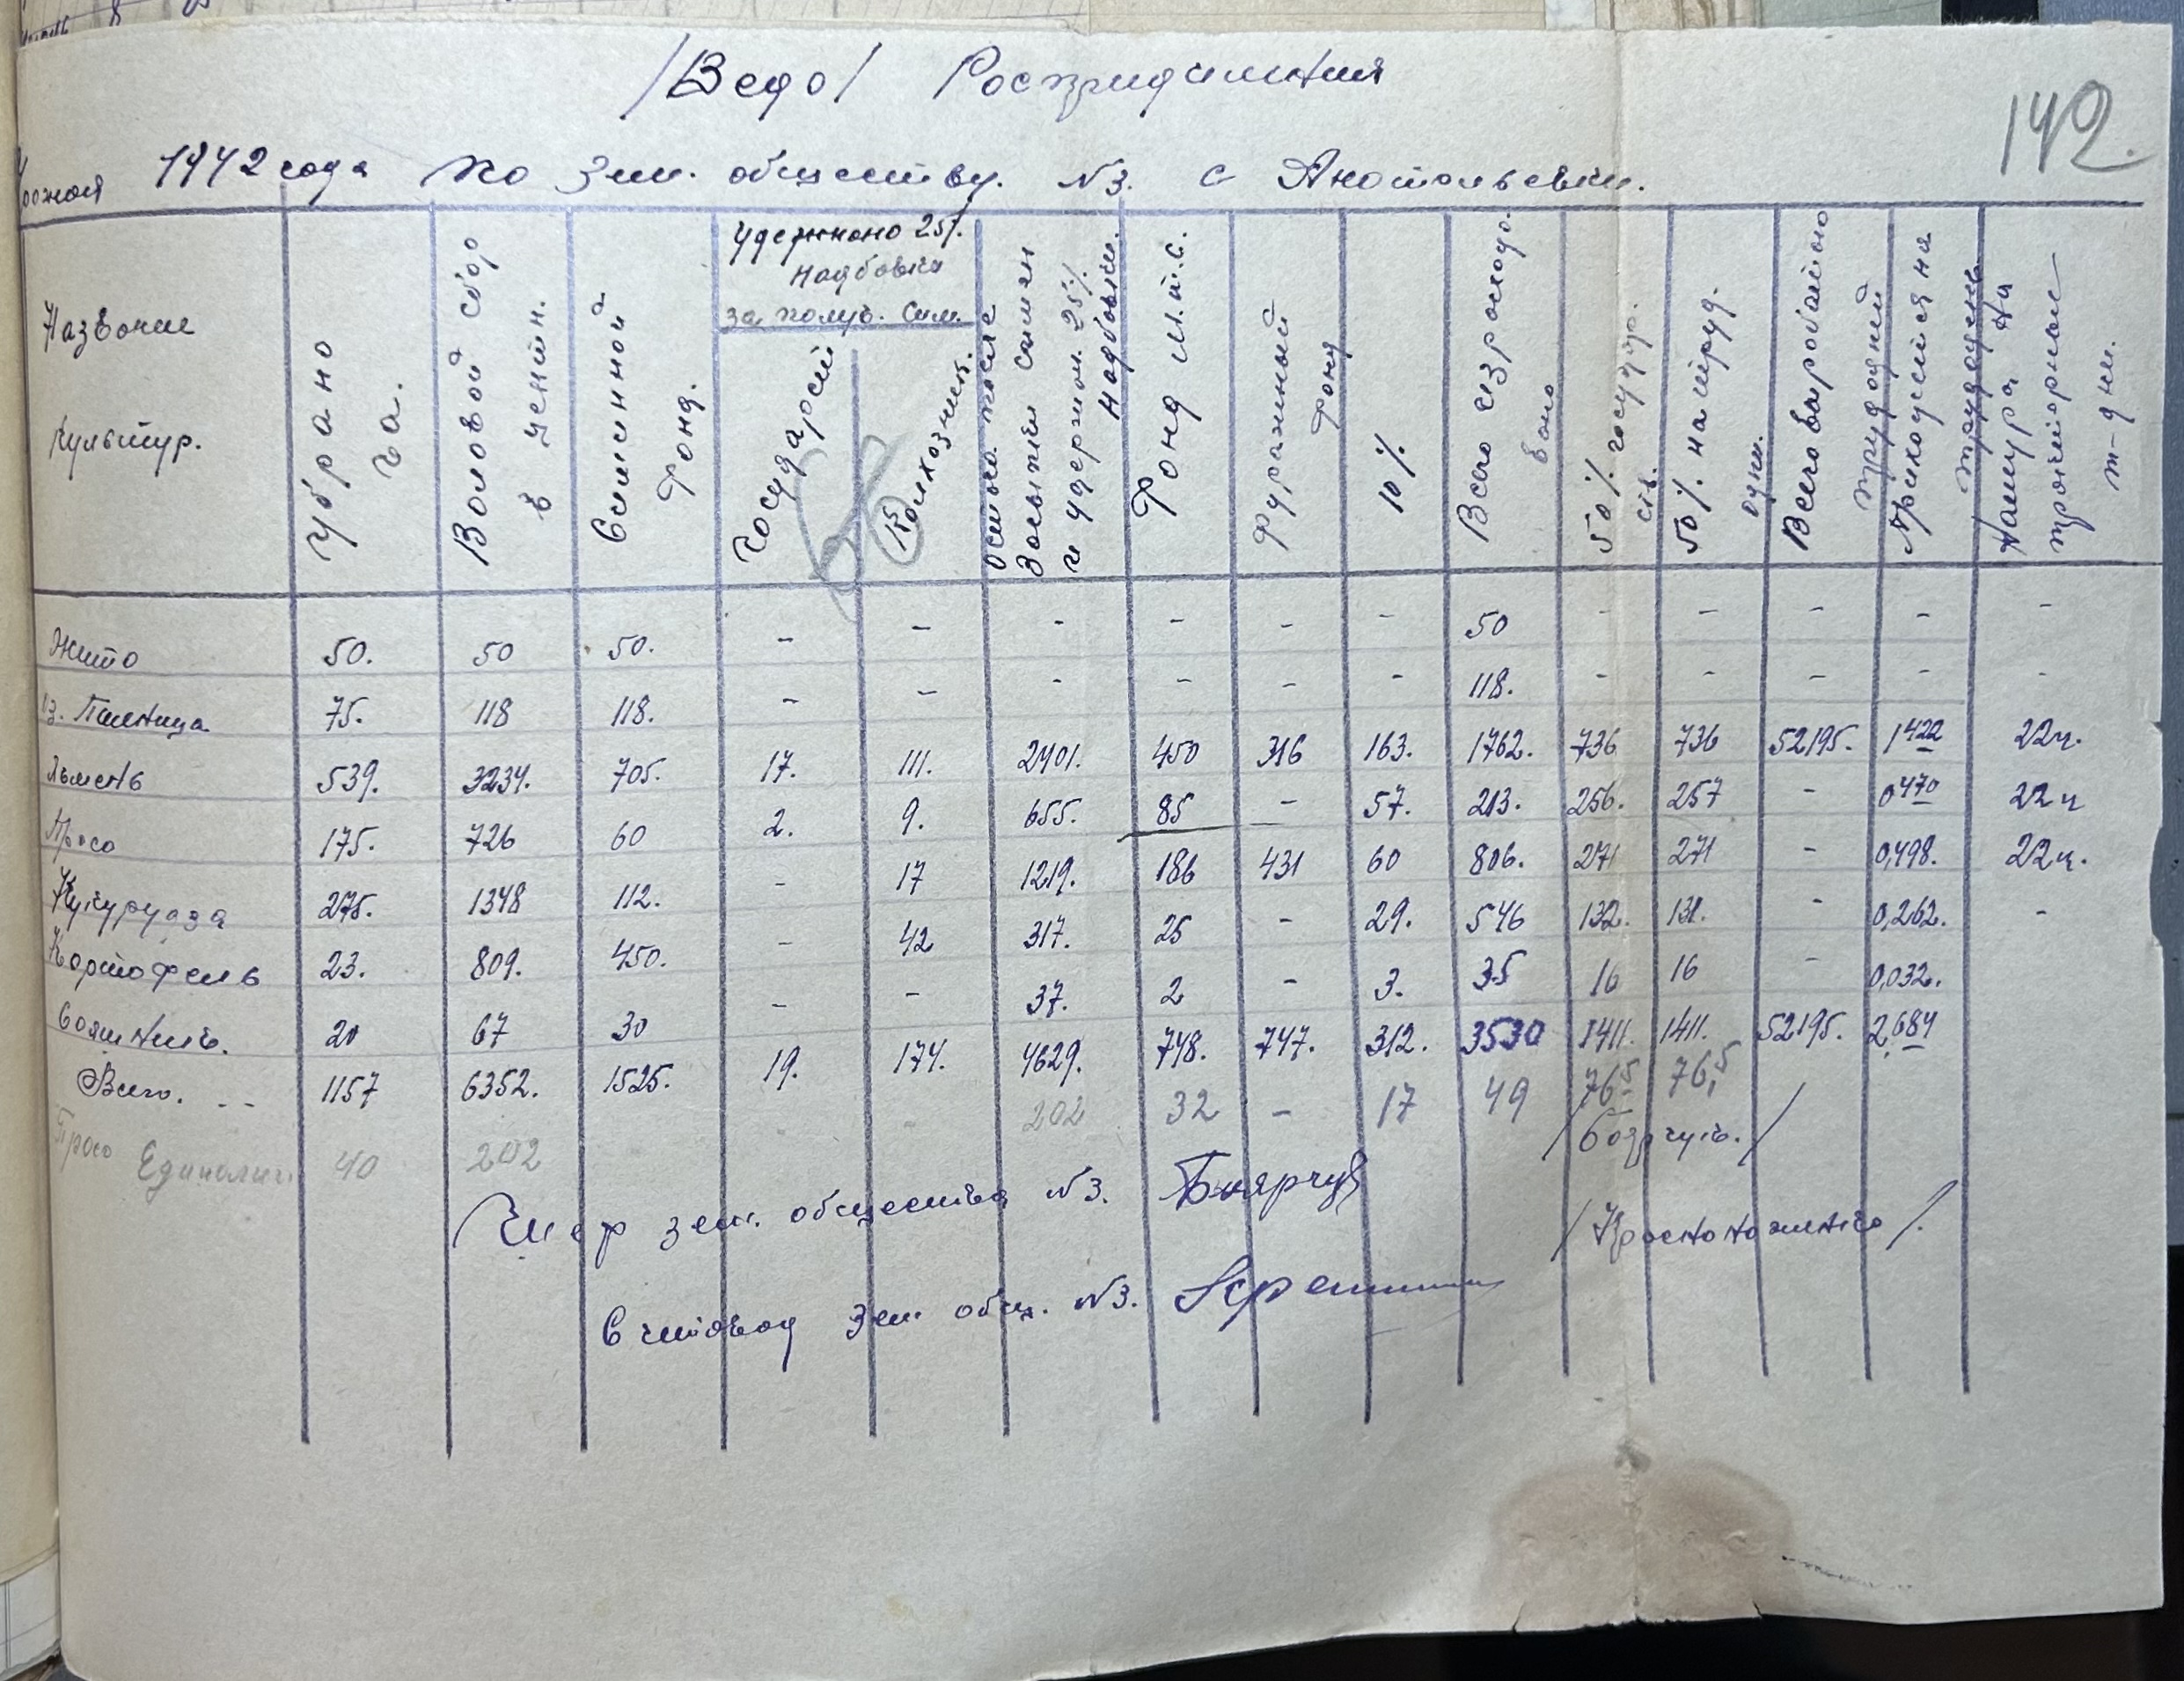 /Ведо/ Роспридиления
142.
Урожая 1942 года по Зем. обществу. №3. с Анотольевки.
Название Культур.
Убрано га.
Воловой сбор в центн.
Семинной Фонд.
Удержано 25%. надбовка за получ. Сем.
Государств
Колхозник.
Остато. после Зосыпки симян и удержан. 25% надбовки.
Фонд М.т.с.
Фуражный Фонд
10%
Всего израсходовано
50% государств.
50% на труд. одни.
Всего выработано трудодней
Приходится на трудодень
Натура на повторные т-дни.
Жито 50. 50 50. - - - - - - 50 - - - - -
Оз. Пшеница 75. 118 118. - - - - - - 118. - - - - -
Ячмень 539. 3234. 705. 17. 111. 2401. 450 316 163. 1762. 736 736 52195. 1422 22ц.
Просо 175. 726 60 2. 9. 655. 85 - 57. 213. 256. 257 - 0470 22ц
Кукуруза 275. 1348 112. - 17 1219. 186 431 60 806. 271 271 - 0,498. 22ц.
Картофель 23. 809. 450. - 42 317. 25 - 29. 546 132. 131. - 0,262. -
Сояшник. 20 67 30 - - 37. 2 - 3. 35 16 16 - 0,032.
Всего. -- 1157 6352. 1525. 19. 174. 4629. 748. 747. 312. 3530 1411. 1411. 52195. 2,684
Просо Единолич. 40 202 - - 202 32 - 17 49 76,5 76,5
зем. общества №3.
Счетовод Зем общ. №3.